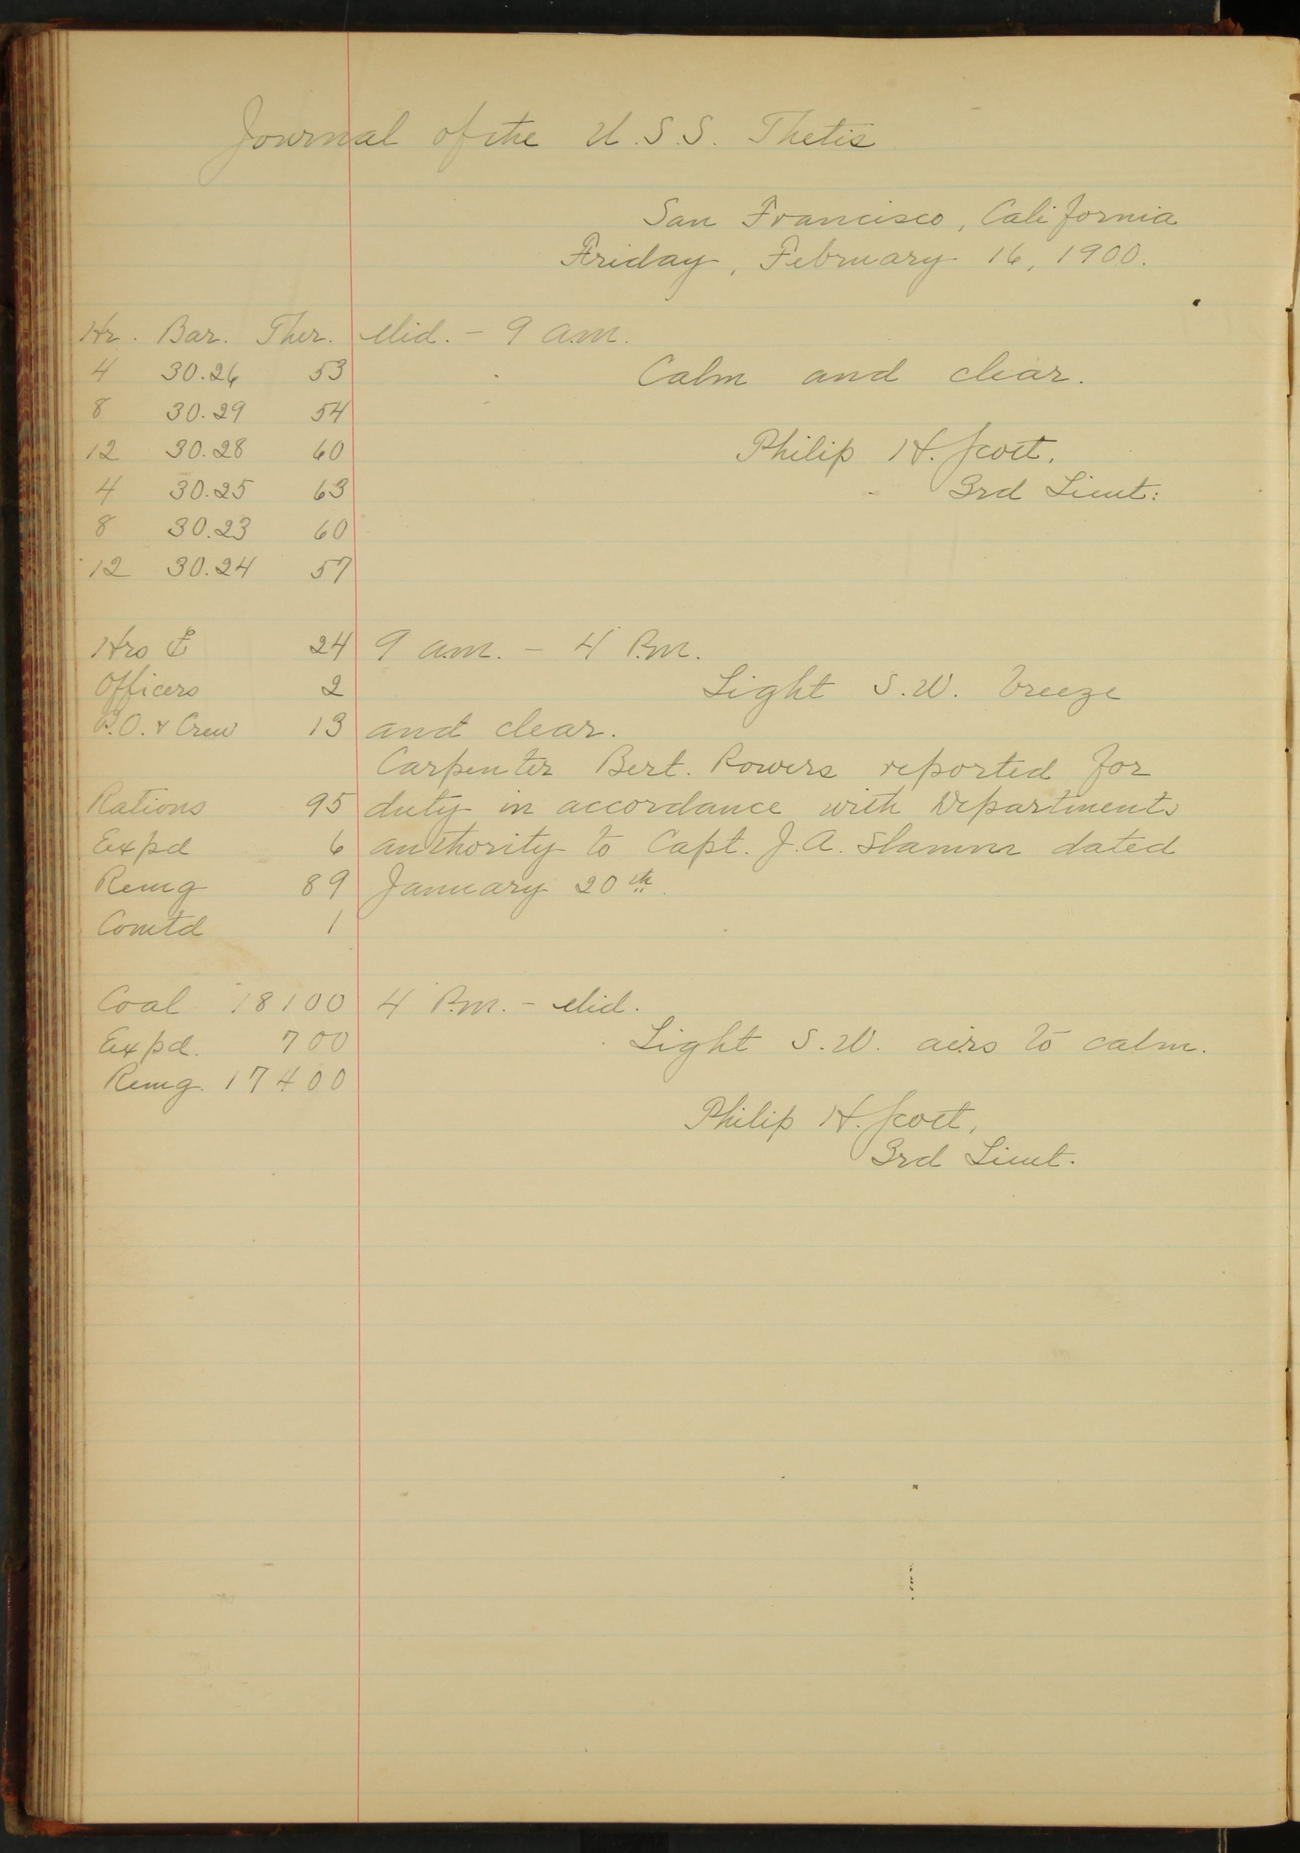 Journal of the U.S.S. Thetis
San Francisco, California
Friday, February 16, 1900.
Hr. Bar. Ther. Mid. - 9 a.m.
4 30.26 53 Calm and clear.
8 30.29 54
12 30.28 60 Philip H. Scott.
4 30.25 63 3rd Lieut:
8 30.23 60
12 30.24 57
Hrs 24 9 a.m. - 4 P.m.
Officers 2 Light S.W. breeze
P.O. & Crew 13 and clear.
Carpenter Bert. Rowers reported for
Rations 95 duty in accordance with Departments
Expd 6 authority to Capt. J.A. Slamm dated
Remg 89 January 20th.
Comtd 1
Coal 18100 4 P.m. - Mid.
Expd. 700 Light S.W. airs to calm.
Remg. 17400
Philip H. Scott,
3rd Lieut.